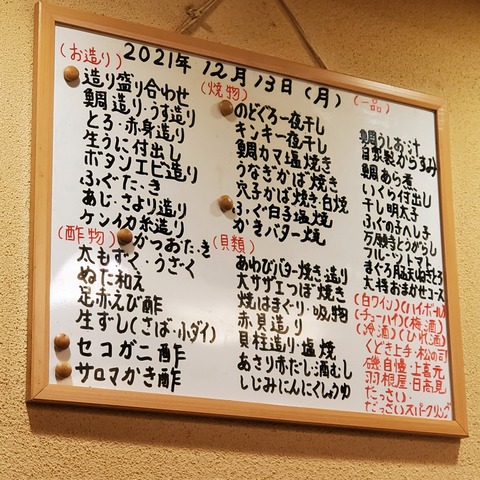 2021年 12月 13日 (月)
(お造り)
造り盛り合わせ
鯛造り・うす造り
とろ・赤身造り
生うに付出し
ボタンエビ造り
ふぐたゝき
あじ・さより造り
ケンイカ糸造り
かつおたゝき
(酢物)
太もずく・うざく
ぬた和え
足赤えび酢
生ずし(さば・小ダイ)
セコガニ酢
サロマかき酢
(焼物)
のどぐろ一夜干し
キンキ一夜干し
鯛カマ塩焼き
うなぎかば焼き
穴子かば焼・白焼
ふぐ白子塩焼
かきバター焼
(貝類)
あわびバター焼き造り
大サザエつぼ焼き
焼はまぐり・吸物
赤貝造り
貝柱造り・塩焼
あさり赤だし・酒むし
しじみにんにくしょうゆ
(一品)
鯛うしお汁
自家製からすみ
鯛あら煮
いくら付出し
干し明太子
ふぐの子へしこ
万願寺とうがらし
フルーツトマト
大将おまかせコース
(白ワイン)(ハイボール)
(チューハイ)(梅酒)
(冷酒)(ひれ酒)
くどき上手・松の司
磯自慢・上喜元
羽根屋・日高見
だっさい・
だっさいスパークリング